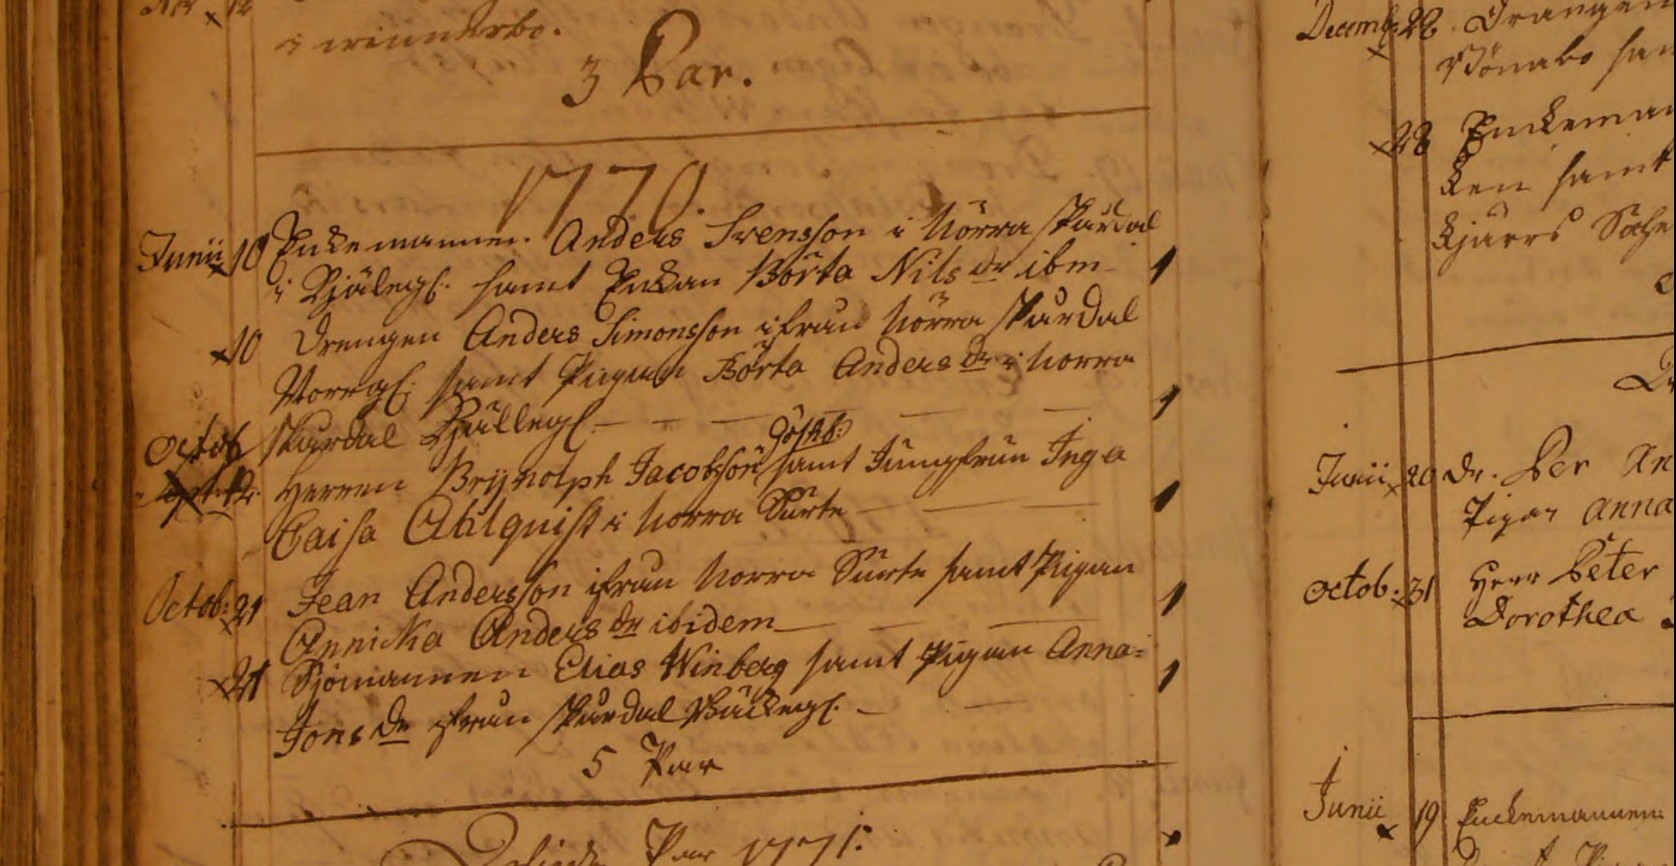 Nov 12
3 Par.
1770.
Junii 10 Enkemannen Anders Svensson i Norra Skårdal
i Kjälegl. samt Enkan Börta Nils dr ibm
10 Drengen Anders Simonsson ifrån Norra Skårdal
Norrgl. samt Pigan Börta Anders dr i Norra
Skårdal Kjällegl.
Octob Herren Brynolph Jacobsson Götheb: samt Jungfrun Inga
Caisa Ahlquist i Norra Surte
Octob: 21 Jean Andersson ifrån Norra Surte samt Pigan
Annicka Anders dr ibidem
21 Sjömannen Elias Winberg samt Pigan Anna
Jons dr ifrån Skårdal Bäckegl.
5 Par
Par 1771:
Decemb. 28 Drängen
28 Enkeman
samt
Kjärrs Sochn
Junii 20 Dr. Per An
Pigan Anna
Octob: 31 Herr Peter
Dorothea
Junii 19 Enckemannen